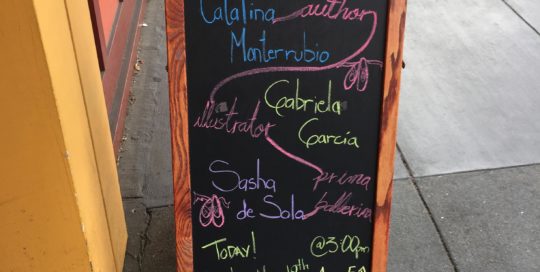 Catalina author
Monterrubio
Gabriela
illustrator García
Sasha prima
de Sola ballerina
TODAY! @3:00pm